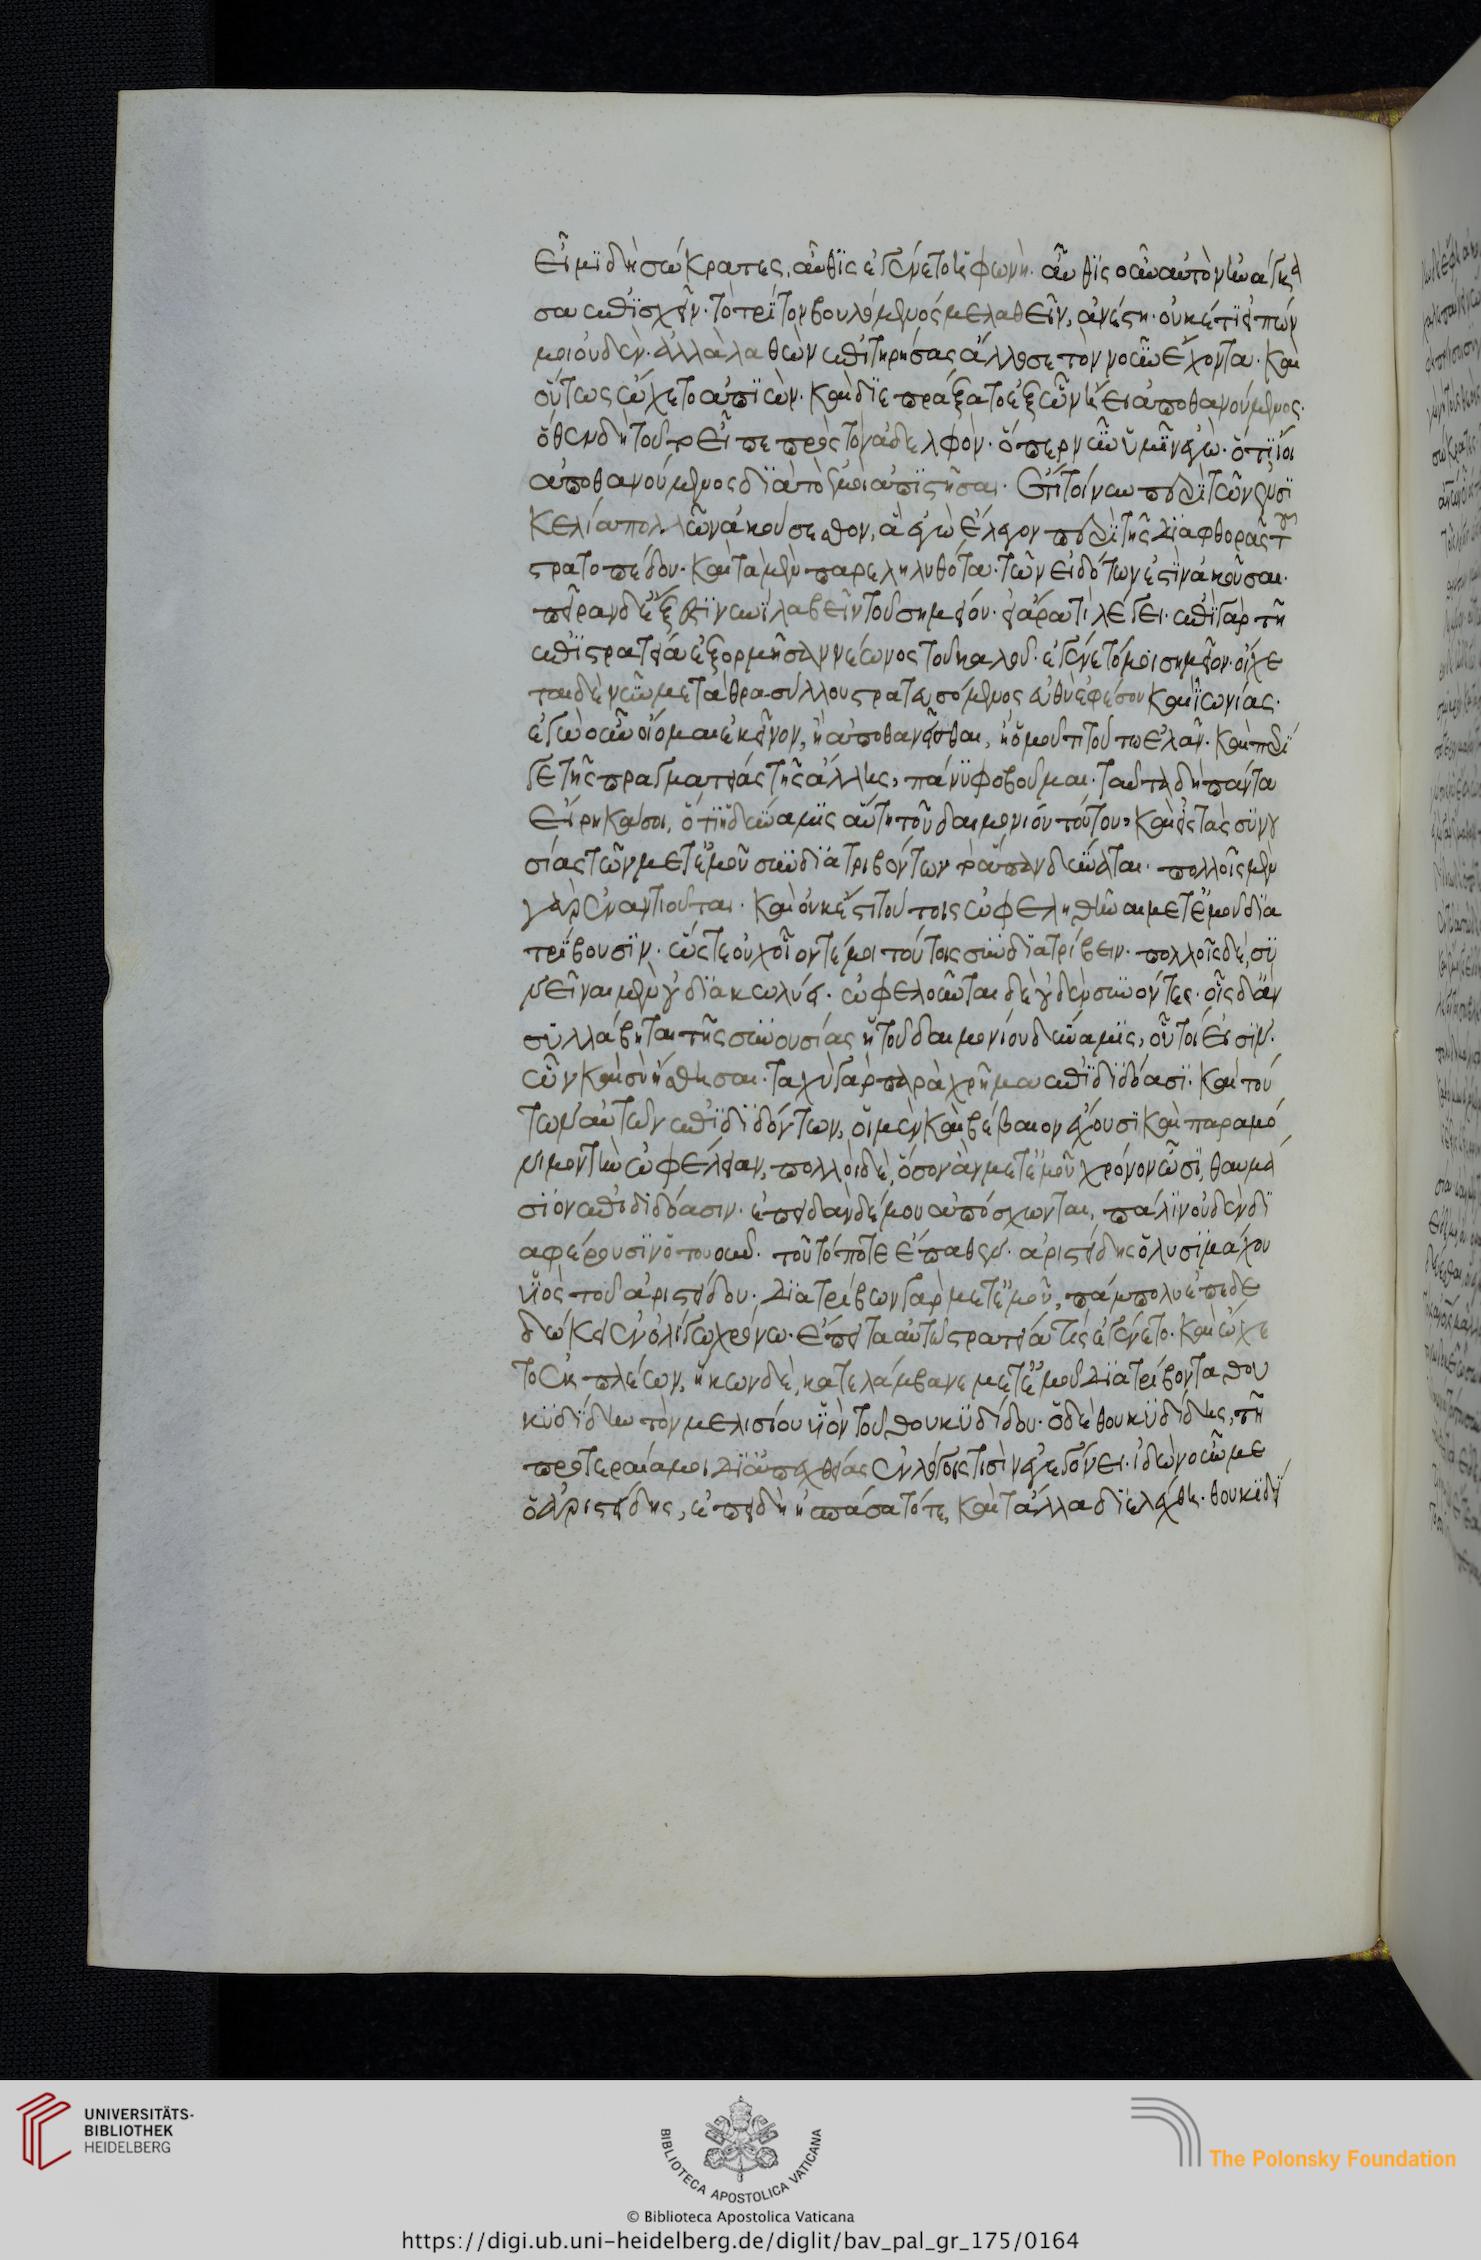 εἶμι δὴ σώκρατες, αὖθις ἐγένετο ἡ φωνὴ. αὖθις οὖν αὐτὸν ἠνάγκα
σα ἐπισχεῖν. τὸ τρίτον βουλόμενός με λαθεῖν, ἀνέστη. οὐκέτι εἰπών
μοι οὐδὲν. ἀλλὰ λαθὼν ἐπιτηρήσας ἄλλοσε τὸν νοῦν ἔχοντα. καὶ
οὕτως ὤχετο ἀπιὼν. καὶ διεπράξατο ἐξ ὧν ἤει ἀποθανούμενος.
ὅθεν δὴ τοῦτο εἶπε πρὸς τὸν ἀδελφὸν. ὅπερ νῦν ὑμῖν ἐγὼ. ὅτι ἴοι
ἀποθανούμενος διὰ τὸ ἐμοὶ ἀπιστῆσαι. ἔτι τοίνυν περὶ τῶν ἐν σι
κελία πολλῶν ἀκούσεσθον, ἃ ἐγὼ ἔλεγον περὶ τῆς διαφθορᾶς τοῦ
στρατοπέδου. καὶ τὰ μὲν παρεληλυθότα. τῶν εἰδότων ἐστὶν ἀκοῦσαι.
πεῖραν δ' ἔξεστιν νυνὶ λαβεῖν τοῦ σημείου. εἰ ἄρα τὶ λέγει. ἐπὶ γὰρ τῆ
ἐπὶ στρατείαν ἐξορμῆ σαννέωνος τοῦ καλοῦ. ἐγένετό μοι σημεῖον. οἴχε
ται δὲ νῦν μετὰ θρασύλλου στρατευσόμενος εὐθὺ ἐφέσου καὶ ἰωνίας.
ἐγὼ οὖν οἴομαι ἐκεῖνον, ἢ ἀποθανεῖσθαι, ἢ ὁμοῦ τι τούτω ἐλᾶν. καὶ περὶ
γε τῆς πραγματείας τῆς ἄλλης, πάνυ φοβοῦμαι. ταῦτα δὴ πάντα
εἴρηκά σοι, ὅτι ἡ δύναμις αὕτη τοῦ δαιμονίου τούτου, καὶ εἰς τὰς συνου
σίας τῶν μετ' ἐμοῦ συνδιατριβόντων τὸ ἅπαν δύναται. πολλοῖς μὲν
γὰρ ἐναντιοῦται. καὶ οὐκ ἔστι τούτοις ὠφεληθῆναι μετ' ἐμοῦ δια
τρίβουσιν. ὥστε οὐχ οἷόν τέ μοι τούτοις συνδιατρίβειν. πολλοῖς δὲ, συ
νεῖναι μὲν οὐ διακωλύει. ὠφελοῦνται δὲ οὐδὲν συνόντες. οἷς δ' ἂν
συλλάβηται τῆς συνουσίας ἡ τοῦ δαιμονίου δύναμις, οὗτοί εἰσιν.
ὧν καὶ σὺ ἤσθησαι. ταχὺ γὰρ παραχρῆμα ἐπιδιδόασι. καὶ τού
των αὖ τῶν ἐπιδιδόντων, οἱ μὲν καὶ βέβαιον ἔχουσι καὶ παραμό
νιμον τὴν ὠφέλειαν, πολλοὶ δὲ, ὅσον ἂν μετ' ἐμοῦ χρόνον ὦσι, θαυμά
σιον ἐπιδιδόασιν. ἐπειδὰν δέ μου ἀπόσχωνται, πάλιν οὐδὲν δι
αφέρουσιν ὁτουοῦν. τοῦτό ποτε ἔπαθεν. ἀριστείδης ὁ λυσιμάχου
υἱὸς τοῦ ἀριστείδου. διατρίβων γὰρ μετ' ἐμοῦ, πάμπολυ ἐπεδε
δώκει ἐν ὀλίγω χρόνω. ἔπειτα αὐτῶ στρατεία τίς ἐγένετο. καὶ ὤχε
το ἐκπλέων, ἥκων δὲ, κατελάμβανε μετ' ἐμοῦ διατρίβοντα θου
κυδίδην τὸν μελισίου υἱὸν τοῦ θουκυδίδου. ὁ δὲ θουκυδίδης, τῆ
προτεραία μοι δι' ἀπεχθείας ἐν λόγοις τισὶν ἐγεγόνει. ἰδὼν οὖν με
ὁ ἀριστείδης, ἐπειδὴ ἠσπάσατό τε, καὶ τἄλλα διελέχθη. θουκυδί
UNIVERSITÄTS-
BIBLIOTHEK
HEIDELBERG
BIBLIOTECA APOSTOLICA VATICANA
The Polonsky Foundation
© Biblioteca Apostolica Vaticana
https://digi.ub.uni-heidelberg.de/diglit/bav_pal_gr_175/0164